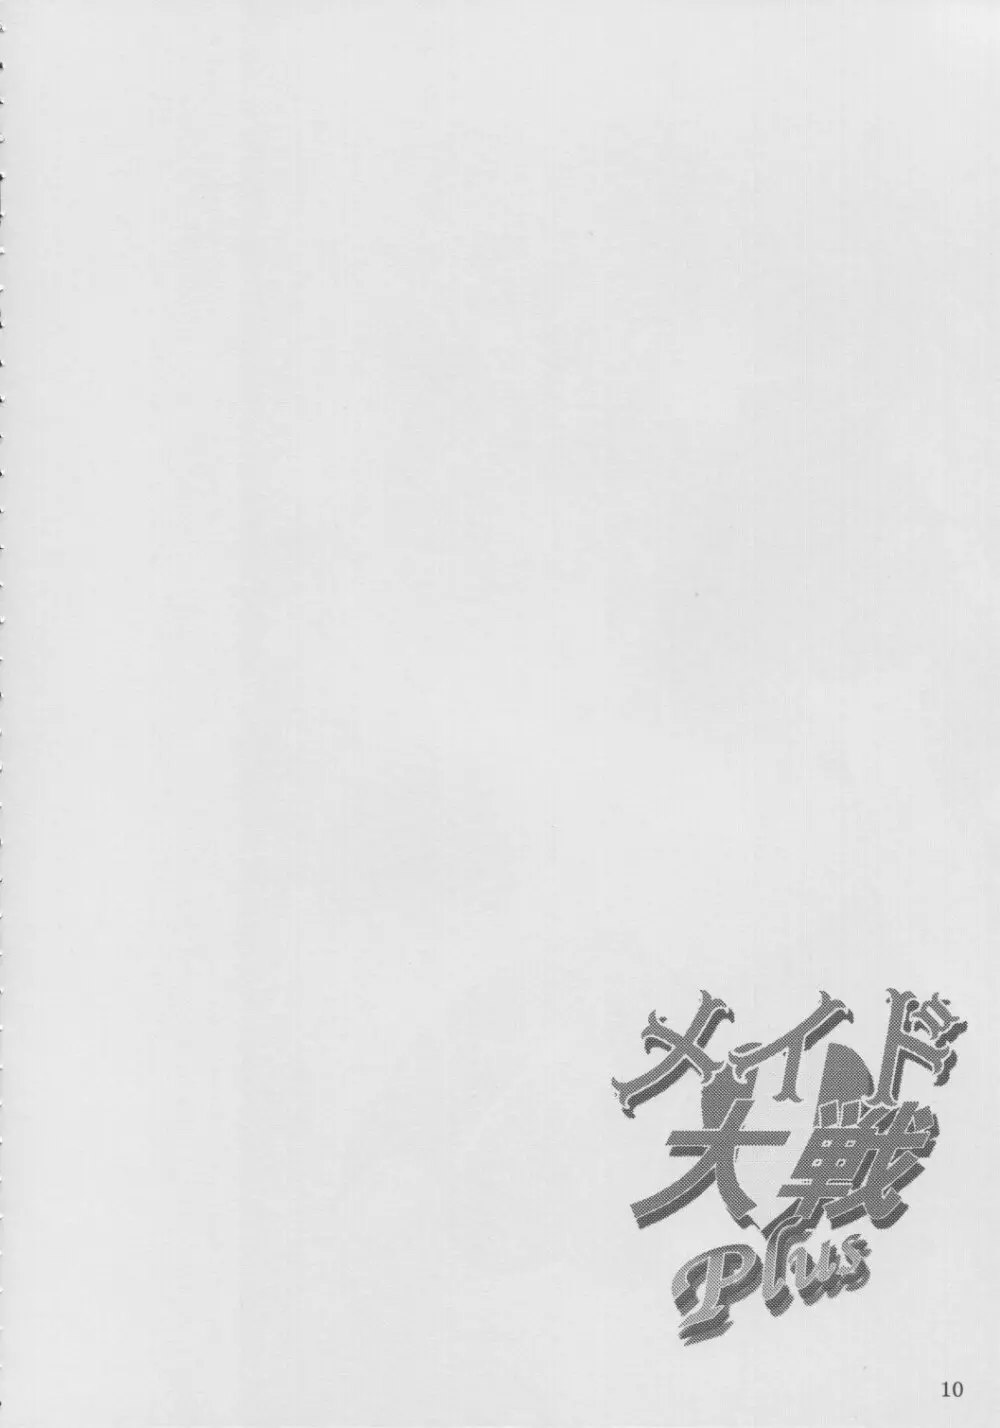 メイド
大戦
Plus
10